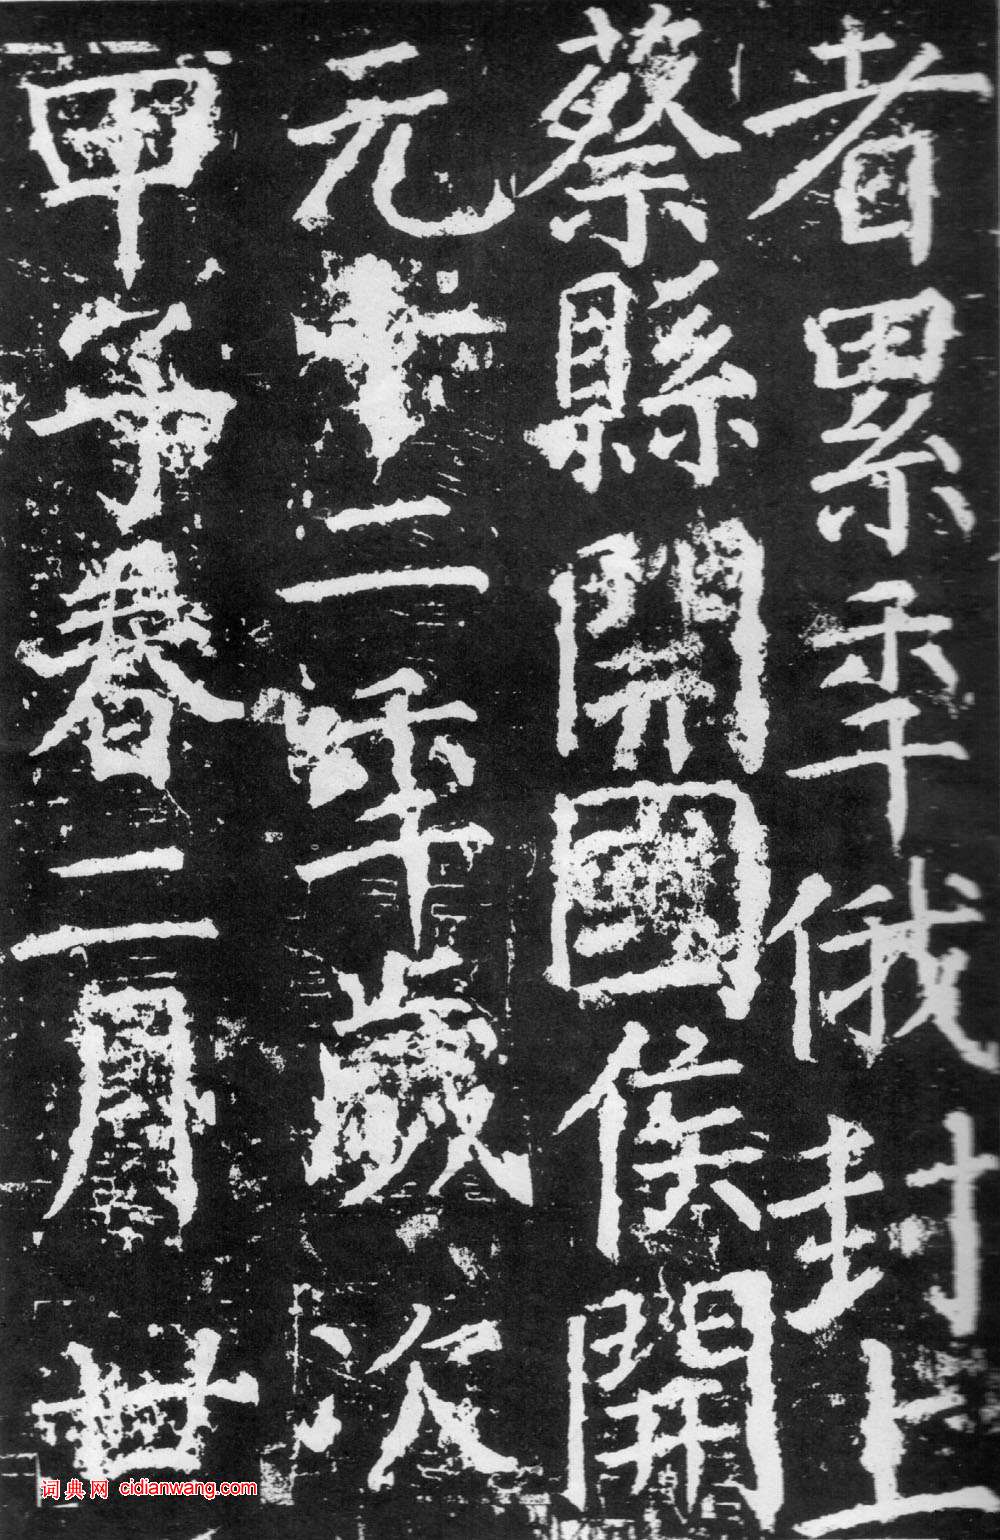 者累秊俄封上
蔡縣開國侯開
元十二秊歲次
甲子春二月廿
词典网 cidianwang.com